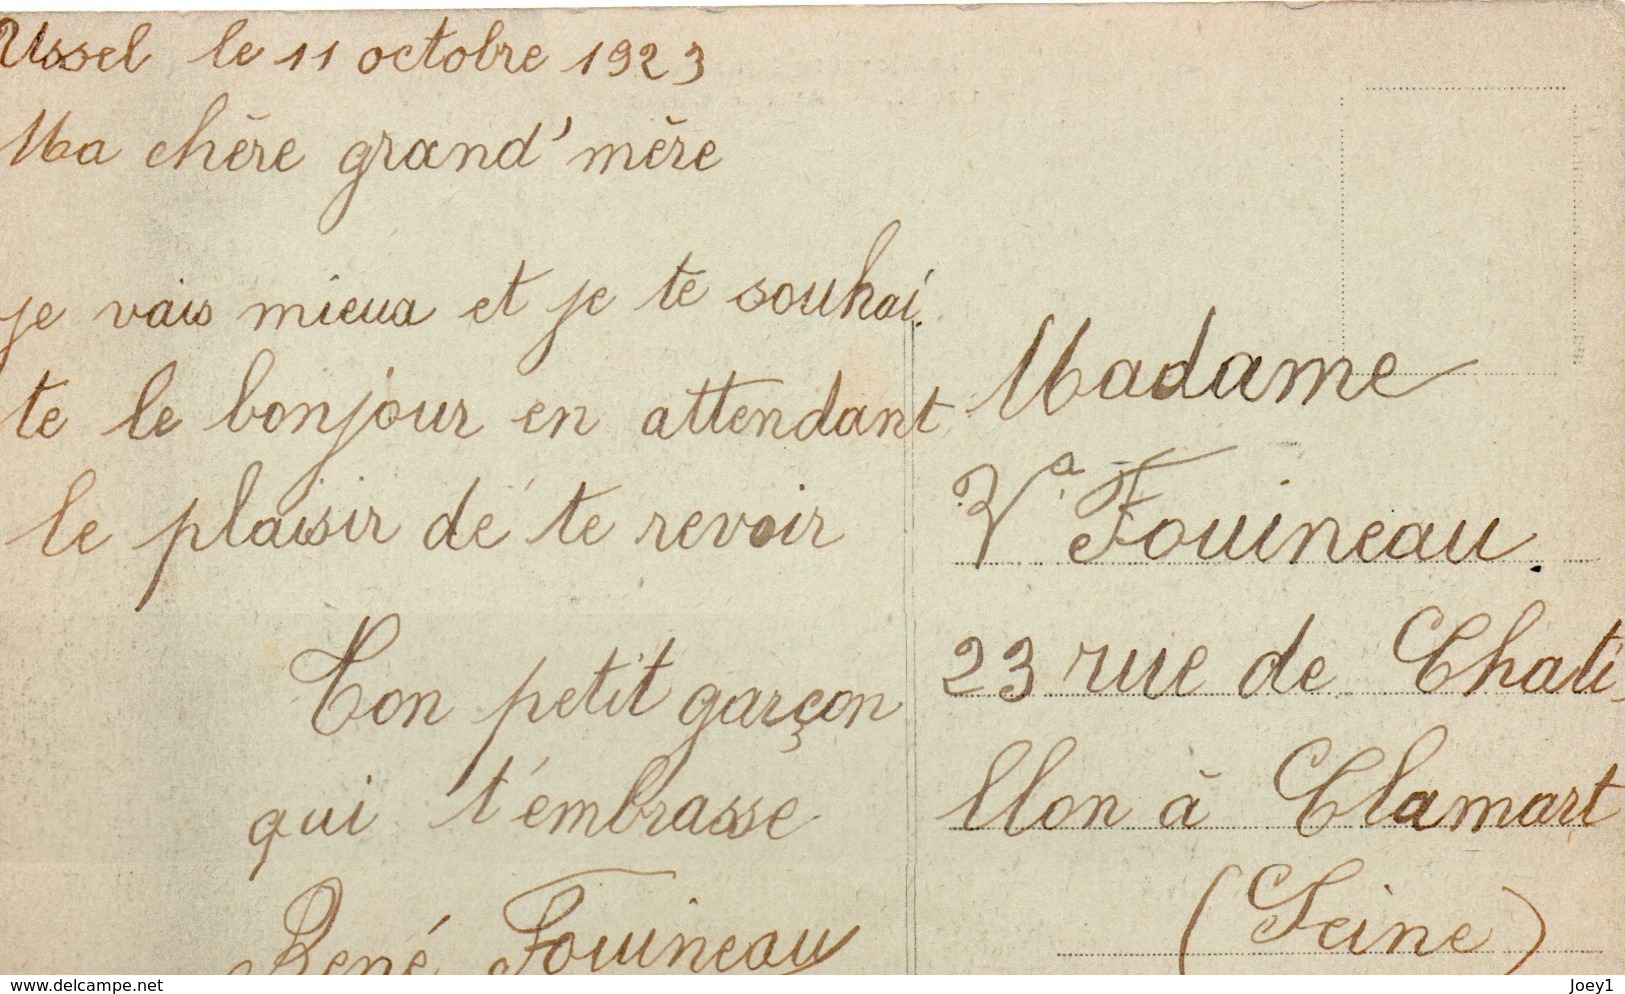 Ussel le 11 octobre 1923
Ma chère grand'mère
je vais mieux et je te souhai
te le bonjour en attendant
le plaisir de te revoir
Ton petit garçon
qui t'embrasse
René Fouineau
Madame
Va Fouineau.
23 rue de Chati
llon à Clamart
(Seine)
www.delcampe.net
Joey1